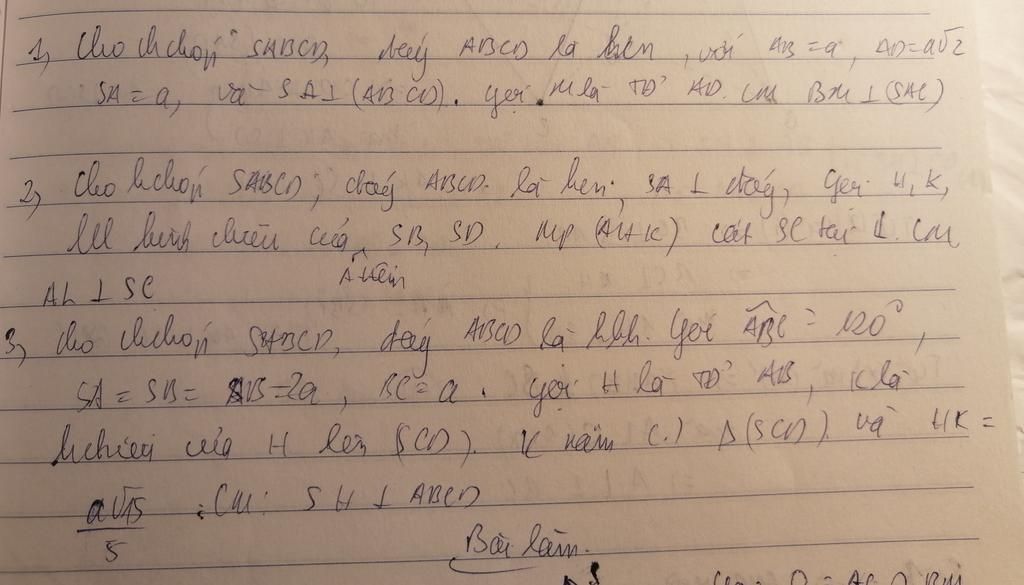 1, Cho hchóp SABCD, đáy ABCD là hcn, với AB = a, AD = a√2
SA = a, và SA ⊥ (ABCD). Gọi M là TĐ AD. CM BM ⊥ (SAC)
2, Cho hchóp SABCD, đáy ABCD là hcn, SA ⊥ đáy, Gọi H, K,
hình chiếu của A lên SB, SD. mp (AHK) cắt SC tại L. CM
AL ⊥ SC
3, Cho hchóp SABCD, đáy ABCD là hbh. Gọi ABC = 120°,
SA = SB = AB = 2a, BC = a. Gọi H là TĐ AB, K là
hchiếu của H lên (SCD). K nằm (.) Δ(SCD) và HK =
a√15/5 ; CM: SH ⊥ ABCD
Bài làm.